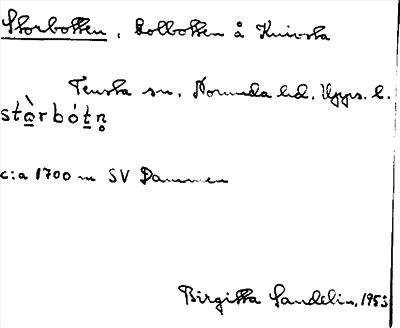 Storbotten, Bolbotten å Kuivsta
Tensta sn, Norunda hd, Upps. l.
stàrbótn̥
c:a 1700 m SV Dammen
Birgitta Sandelin, 1953